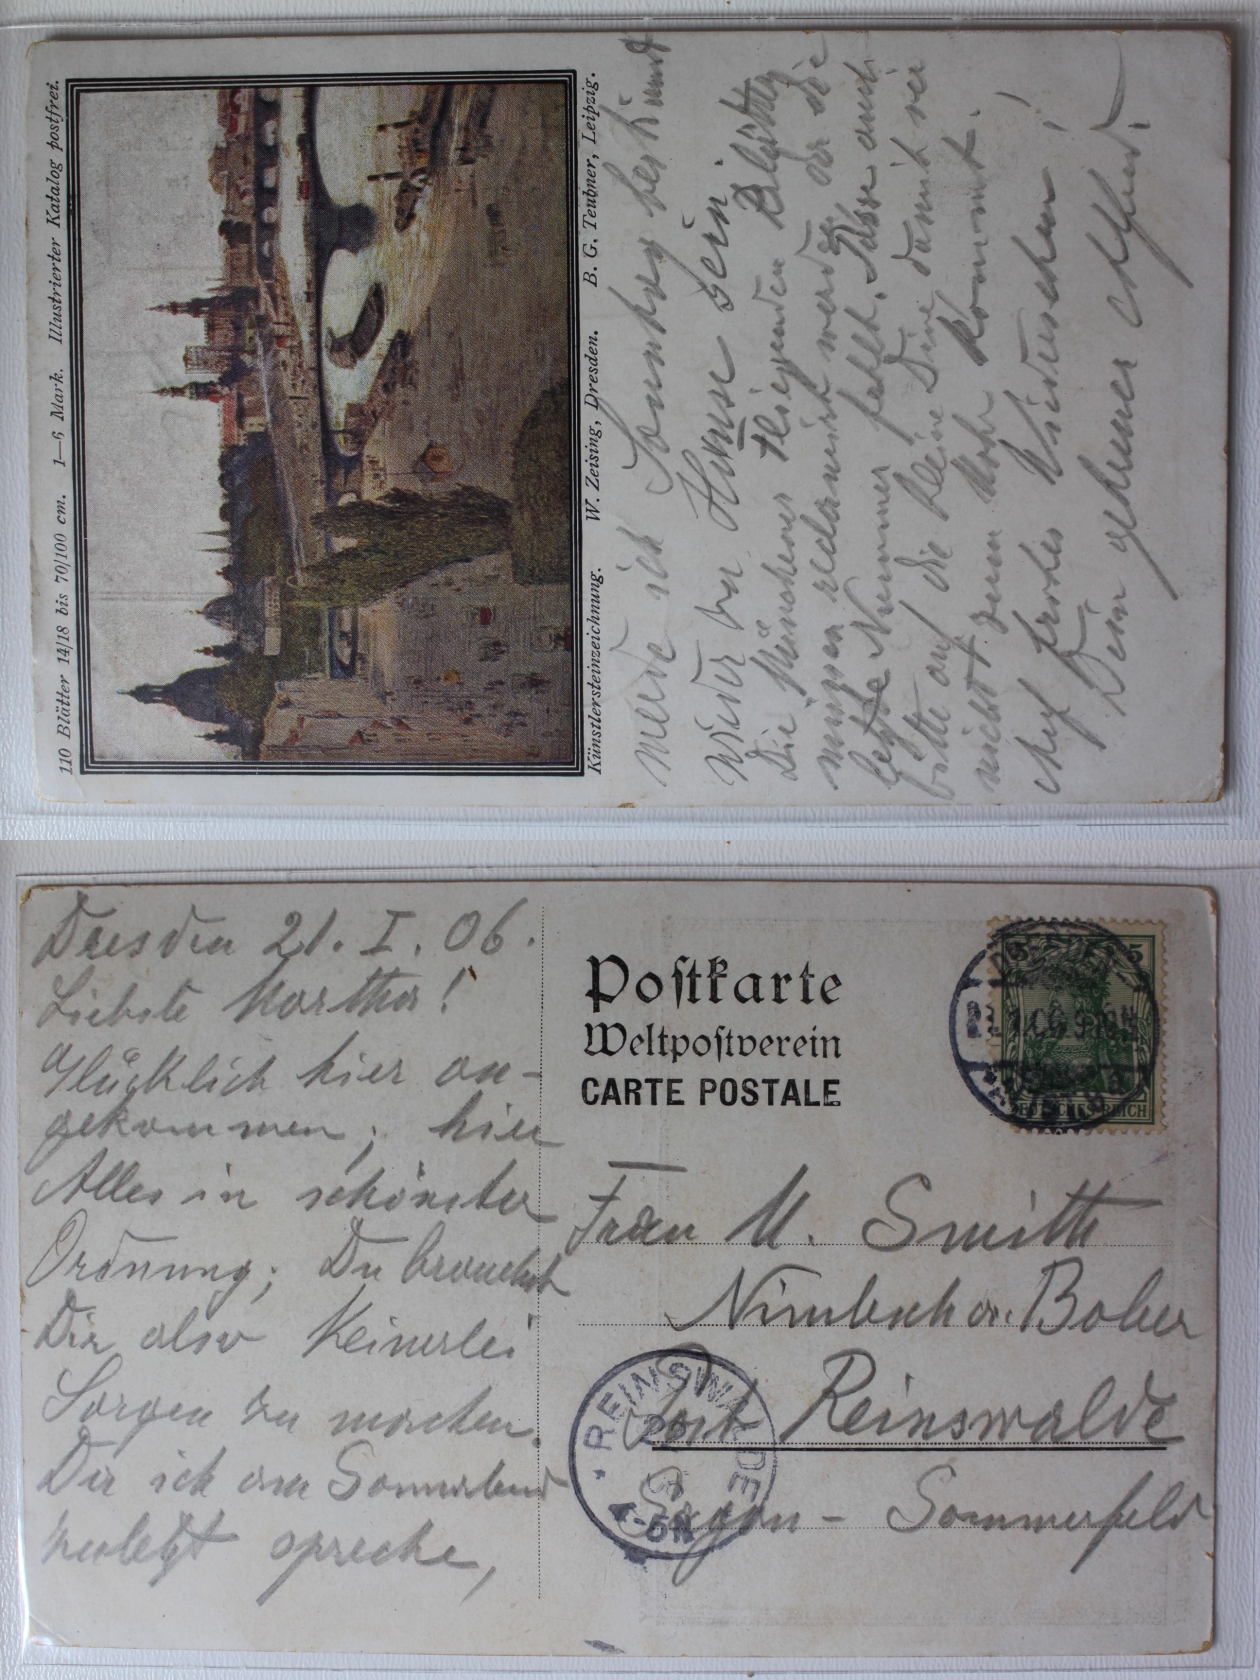 110 Blätter 14/18 bis 70/100 cm. 1—6 Mark. Illustrierter Katalog postfrei.
Künstlersteinzeichnung. W. Zeising, Dresden. B. G. Teubner, Leipzig.
werde ich Sonntag bestimmt
wieder zu Hause sein
Die Münchener Fliegenden Blätter
müssen reclamirt werden da die
letzte Nummer fehlt. Passe auch
bitte auf die kleine Dine damit sie
nicht zum Koch kommt.
Auf frohes Wiedersehen!
Dein getreuer Alfred.
Dresden 21. I. 06.
Liebste Martha!
Glücklich hier an-
gekommen; hier
Alles in schönster
Ordnung; Du brauchst
Dir also keinerlei
Sorgen zu machen.
Da ich am Sonnabend
zuletzt spreche,
Postkarte
Weltpostverein
CARTE POSTALE
5
DEUTSCHES REICH
Frau M. Smith
Nimbsch a. Bober
Post Reinswalde
Sagan - Sommerfeld
REINSWALDE